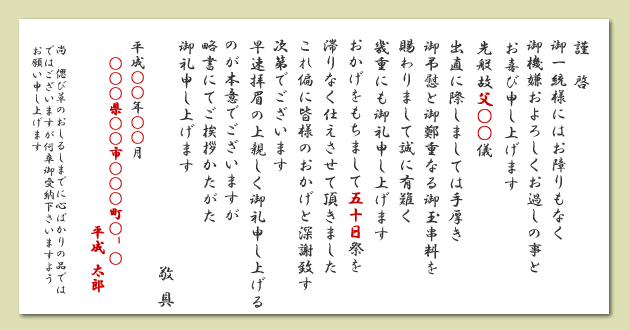 謹啓
御一統様にはお障りもなく
御機嫌およろしくお過しの事と
お喜び申し上げます
先般故父〇〇儀
出直に際しましては手厚き
御弔慰と御鄭重なる御玉串料を
賜わりまして誠に有難く
幾重にも御礼申し上げます
おかげをもちまして五十日祭を
滞りなく仕えさせて頂きました
これ偏に皆様のおかげと深謝致す
次第でございます
早速拝眉の上親しく御礼申し上げる
のが本意でございますが
略書にてご挨拶かたがた
御礼申し上げます
敬具
平成〇〇年〇〇月
〇〇〇県〇〇市〇〇〇町〇-〇
平成 太郎
尚 偲び草のおしるしまでに心ばかりの品では
ではございますが何卒御受納下さいますよう
お願い申し上げます